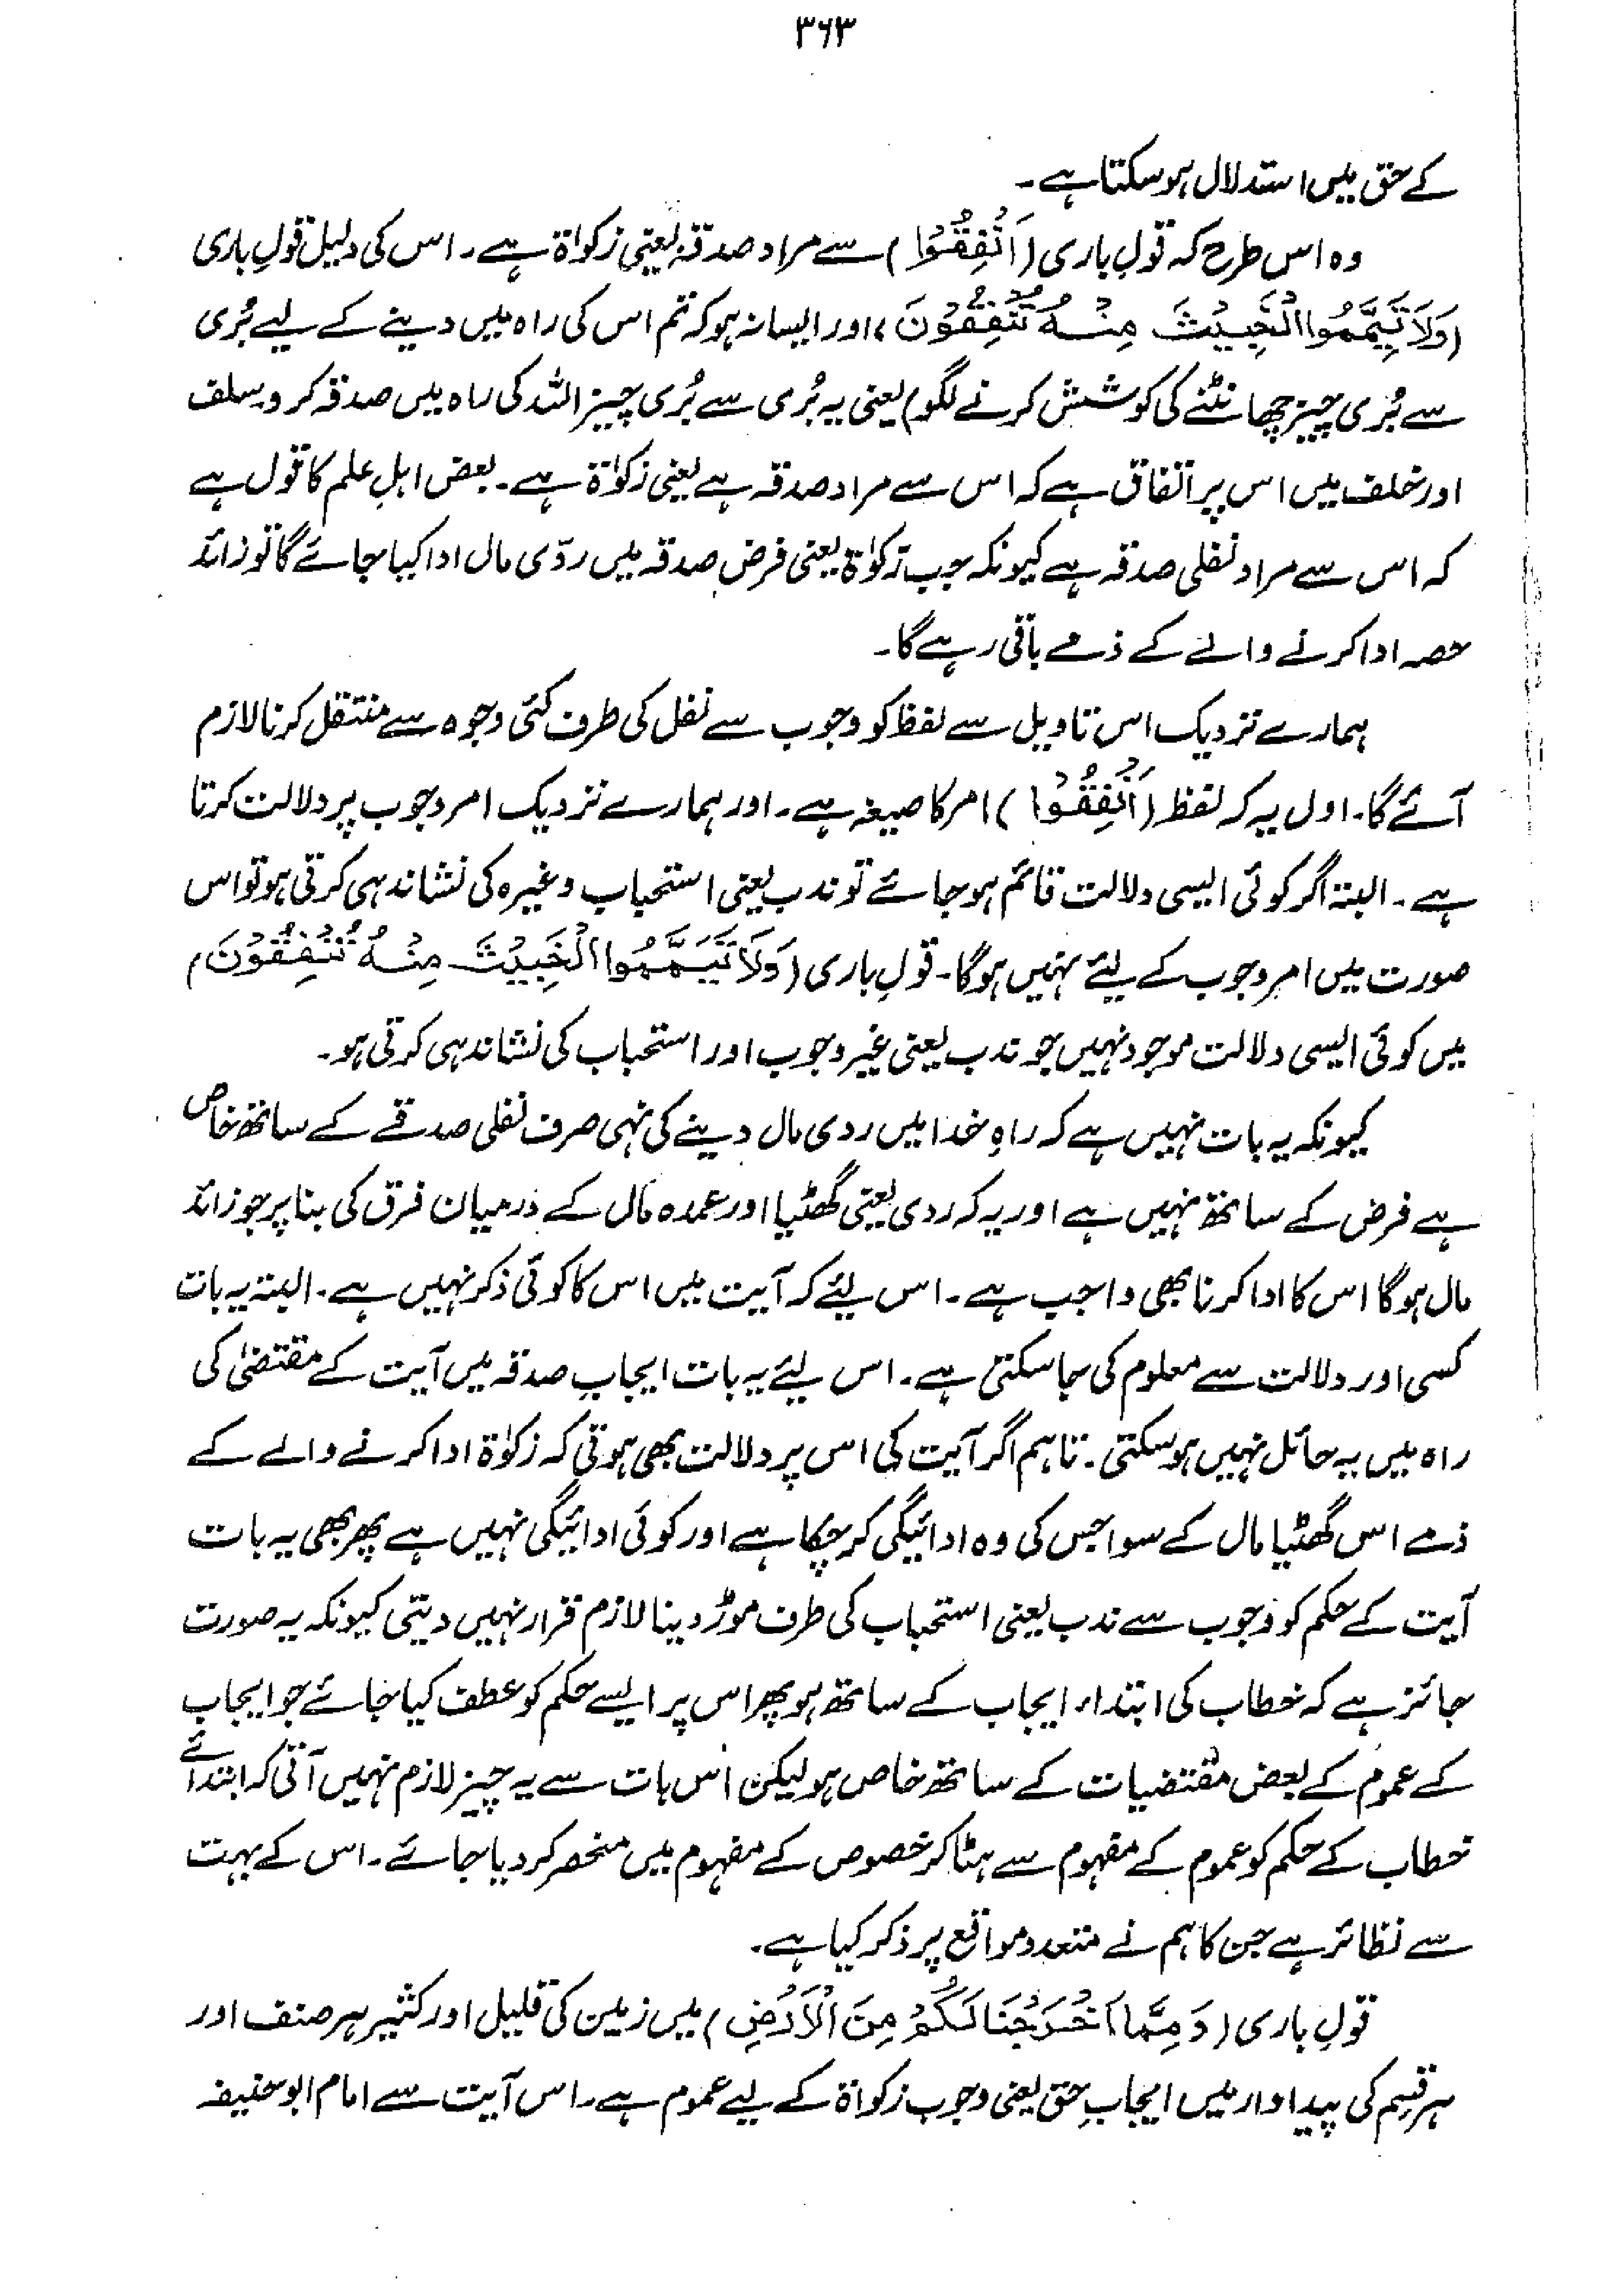 ۳۶۳
کے حق میں استدلال ہوسکتا ہے۔
وہ اس طرح کہ قولِ باری (اَنْفِقُوْا) سے مراد صدقہ یعنی زکواۃ ہے۔ اس کی دلیل قولِ باری
(وَلَا تَيَمَّمُوا الْخَبِيْثَ مِنْهُ تُنْفِقُوْنَ، اور ایسا نہ ہو کہ تم اس کی راہ میں دینے کے لیے بُری
سے بُری چیز چھانٹنے کی کوشش کرنے لگو) یعنی یہ بُری سے بُری چیز اللہ کی راہ میں صدقہ کرو۔ سلف
اور خلف میں اس پر اتفاق ہے کہ اس سے مراد صدقہ ہے یعنی زکوٰۃ ہے۔ بعض اہلِ علم کا قول ہے
کہ اس سے مراد نفلی صدقہ ہے کیونکہ جب زکوٰۃ یعنی فرض صدقہ میں ردّی مال ادا کیا جائے گا تو زائد
حصہ ادا کرنے والے کے ذمے باقی رہے گا۔
ہمارے نزدیک اس تاویل سے لفظ کو وجوب سے نفل کی طرف کئی وجوہ سے منتقل کرنا لازم
آئے گا۔ اول یہ کہ لفظ (اَنْفِقُوْا) امر کا صیغہ ہے۔ اور ہمارے نزدیک امر وجوب پر دلالت کرتا
ہے۔ البتہ اگر کوئی ایسی دلالت قائم ہو جائے تو ندب یعنی استحباب وغیرہ کی نشاندہی کرتی ہو تو اس
صورت میں امر وجوب کے لیئے نہیں ہوگا۔ قولِ باری (وَلَا تَيَمَّمُوا الْخَبِيْثَ مِنْهُ تُنْفِقُوْنَ)
میں کوئی ایسی دلالت موجود نہیں جو ندب یعنی غیر وجوب اور استحباب کی نشاندہی کرتی ہو۔
کیونکہ یہ بات نہیں ہے کہ راہِ خدا میں ردی مال دینے کی نہی صرف نفلی صدقے کے ساتھ خاص
ہے فرض کے ساتھ نہیں ہے اور یہ کہ ردی یعنی گھٹیا اور عمدہ مال کے درمیان فرق کی بنا پر جو زائد
مال ہوگا اس کا ادا کرنا بھی واجب ہے۔ اس لیئے کہ آیت میں اس کا کوئی ذکر نہیں ہے۔ البتہ یہ بات
کسی اور دلالت سے معلوم کی جاسکتی ہے۔ اس لیئے یہ بات ایجابِ صدقہ میں آیت کے مقتضیٰ کی
راہ میں یہ حائل نہیں ہوسکتی۔ تاہم اگر آیت کی اس پر دلالت بھی ہوتی کہ زکوٰۃ ادا کرنے والے کے
ذمے اس گھٹیا مال کے سوا جس کی وہ ادائیگی کر چکا ہے اور کوئی ادائیگی نہیں ہے پھر بھی یہ بات
آیت کے حکم کو وجوب سے ندب یعنی استحباب کی طرف موڑ دینا لازم قرار نہیں دیتی کیونکہ یہ صورت
جائز ہے کہ خطاب کی ابتداء ایجاب کے ساتھ ہو پھر اس پر ایسے حکم کو عطف کیا جائے جو ایجاب
کے عموم کے بعض مقتضیات کے ساتھ خاص ہو لیکن اس بات سے یہ چیز لازم نہیں آتی کہ ابتدائے
خطاب کے حکم کو عموم کے مفہوم سے ہٹا کر خصوص کے مفہوم میں منحصر کر دیا جائے۔ اس کے بہت
سے نظائر ہے جن کا ہم نے متعدد مواقع پر ذکر کیا ہے۔
قولِ باری (وَمِمَّا اَخْرَجْنَا لَكُمْ مِنَ الْاَرْضِ) میں زمین کی قلیل اور کثیر ہر صنف اور
ہر قسم کی پیداوار میں ایجابِ حق یعنی وجوب زکواۃ کے لیے عموم ہے۔ اس آیت سے امام ابو حنیفہ